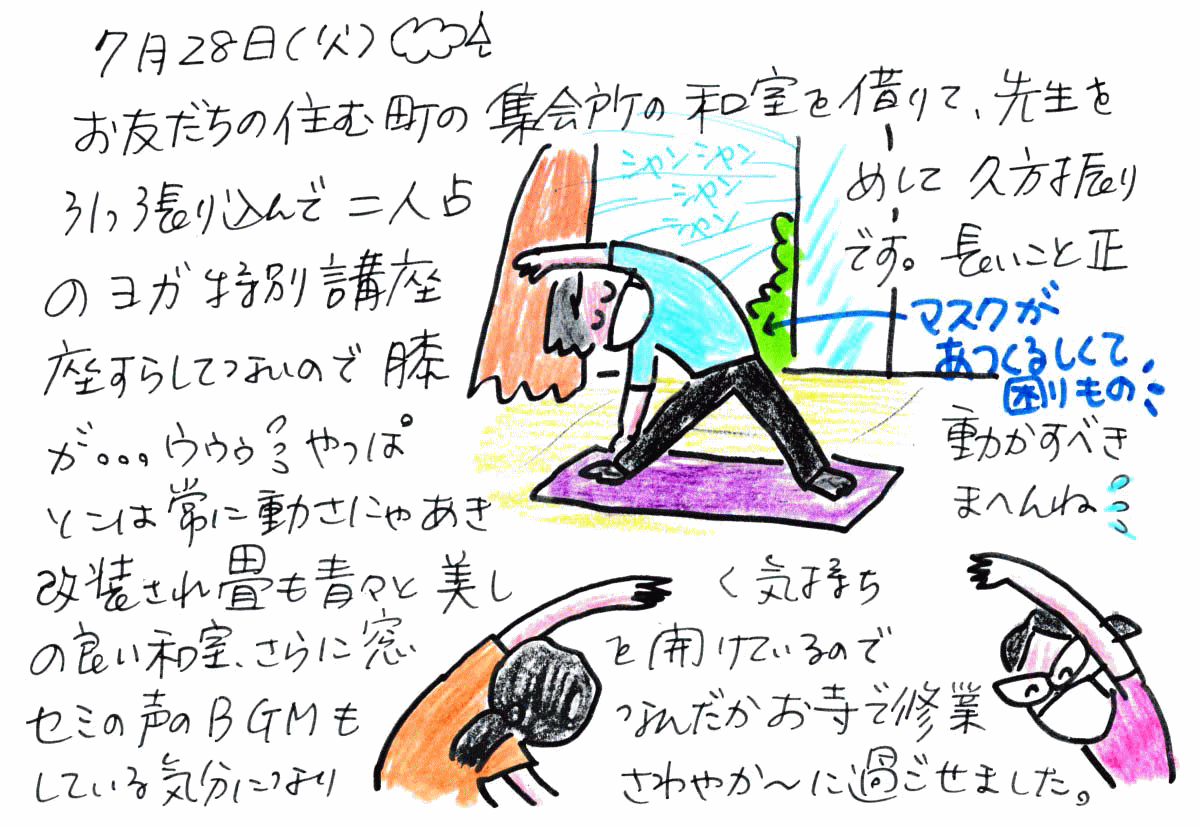 7月28日(火)
お友だちの住む町の集会所の和室を借りて、先生を
引っ張り込んで二人占めして久方振り
のヨガ特別講座です。長いこと正
座すらしてないので膝
が。。。ウウゥ やっぱ動かすべき
とこは常に動さにゃあきまへんね
改装され畳も青々と美しく気持ち
の良い和室、さらに窓を開けているので
セミの声のBGMもなんだかお寺で修業
している気分になりさわやか〜に過ごせました。
シャンシャン
シャン
シャン
マスクが
あつくるしくて
困りもの